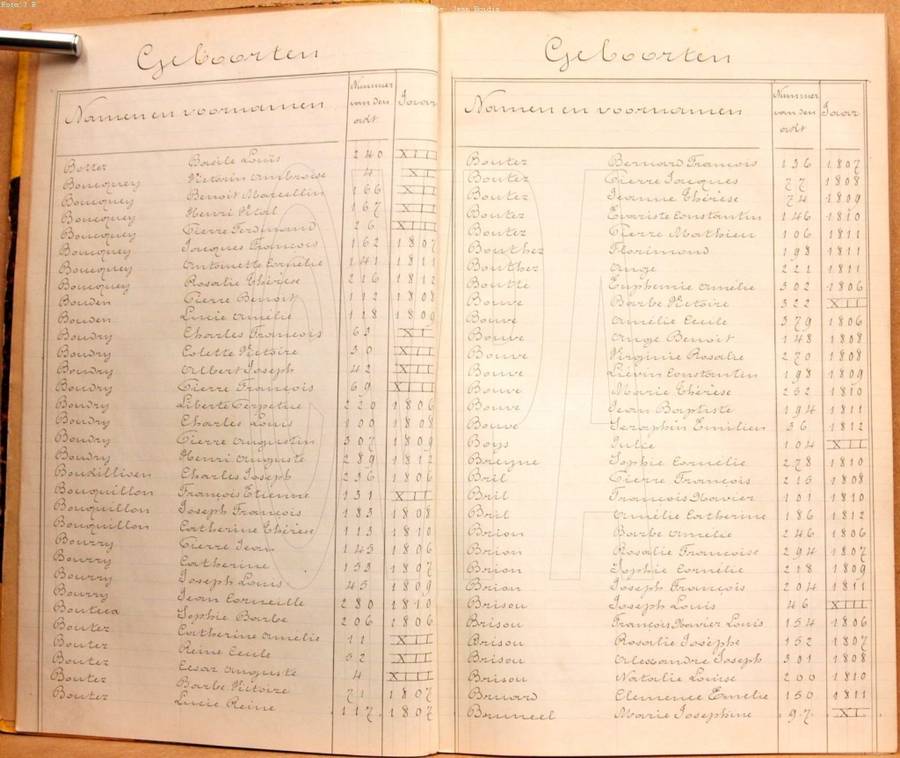 Geboorten
Namen en voornamen Nummer van den acht Jaar
Botter Basile Louis 240 XII
Boucquey Victorin Ambroise 4 XI
Boucquey Benoit Marcellin 166 XII
Boucquey Henri Vital 167 XII
Boucquey Pierre Ferdinand 26 XIII
Boucquey Jacques François 162 1807
Boucquey Antoinette Cornélie 141 1811
Boucquey Rosalie Thérèse 216 1812
Bouden Pierre Benoit 112 1808
Bouden Lucie Amélie 118 1809
Boudry Charles François 63 XI
Boudry Colette Victoire 30 XII
Boudry Albert Joseph 42 XII
Boudry Pierre François 69 XIII
Boudry Liberte Perpetue 220 1806
Boudry Charles Louis 100 1808
Boudry Pierre Augustin 307 1809
Boudry Henri Auguste 289 1812
Charles Joseph 236 1806
Bouquillon François Etienne 131 XII
Bouquillon Joseph François 183 1808
Bouquillon Catherine Thérèse 113 1810
Bourry Pierre Jean 143 1806
Bourry Catherine 153 1807
Bourry Joseph Louis 45 1809
Bourry Jean Corneille 280 1810
Sophie Barbe 206 1806
Boutez Catherine Amelie 11 XII
Boutez Reine Cecile 32 XII
Boutez Cesar Auguste 4 XIII
Boutez Barbe Victoire 71 1807
Boutez Lucie Reine 117 1807
Geboorten
Namen en voornamen Nummer van den acht Jaar
Boutez Bernard François 136 1807
Boutez Pierre Jacques 77 1808
Boutez Jeanne Thérèse 74 1809
Boutez Evariste Constantin 146 1810
Boutez Pierre Mathieu 106 1811
Bouthez Florimond 198 1811
Bouthez Ange 221 1811
Euphemie Amélie 302 1806
Bouve Barbe Victoire 322 XII
Bouve Amélie Cecile 379 1806
Bouve Ange Benoit 148 1808
Bouve Virginie Rosalie 270 1808
Bouve Liévin Constantin 198 1809
Bouve Marie Thérèse 252 1810
Bouve Jean Baptiste 194 1811
Bouve Seraphin Emilien 36 1812
Boys Julie 104 XII
Breyne Sophie Cornélie 278 1810
Bril Pierre François 215 1808
Bril François Xavier 101 1810
Bril Amélie Catherine 186 1812
Brion Barbe Amelie 246 1806
Brion Rosalie Françoise 294 1807
Brion Sophie Cornélie 218 1809
Brion Joseph François 204 1811
Brisou Joseph Louis 46 XIII
Brisou François Xavier Louis 154 1806
Brisou Rosalie Josephe 152 1807
Brisou Alexandre Joseph 301 1808
Brisou Natalie Louise 200 1810
Bruard Clemence Emelie 150 1811
Bruneel Marie Josephine 97 XI